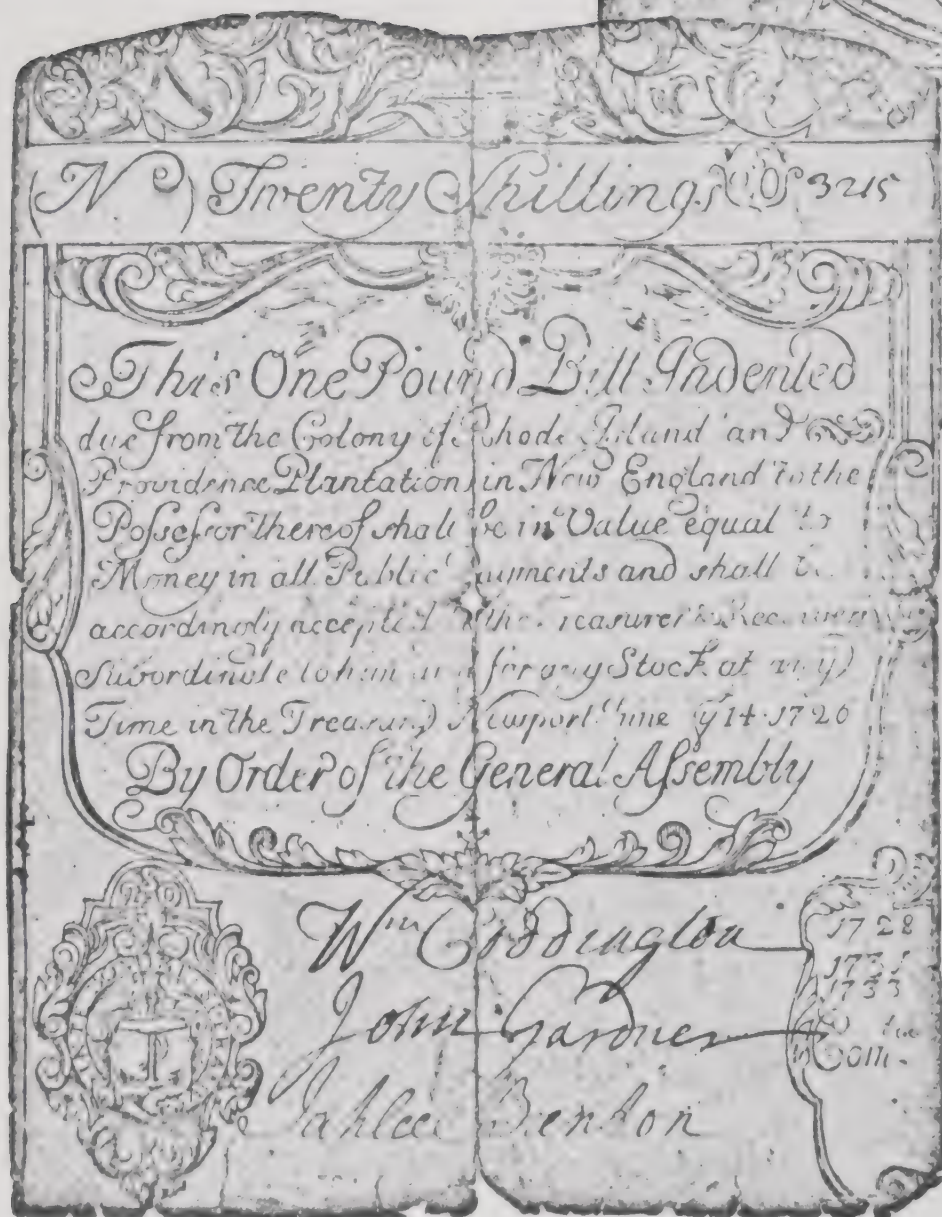 (No) Twenty Shillings (10s) 3215
This One Pound Bill Indented
due from the Colony of Rhode Island and
Providence Plantations in New England to the
Possessor thereof shall be in Value equal to
Money in all Publick payments and shall be
accordingly accepted the Treasurer &
Subordinate to him and for any Stock at any
Time in the Treasury Newport June ye 14 1726
By Order of the General Assembly
Wm Coddington
John Gardner
Jahleel Brenton
1728
1733